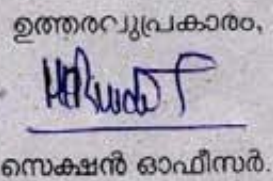 ഉത്തരവുപ്രകാരം,
സെക്ഷൻ ഓഫീസർ.